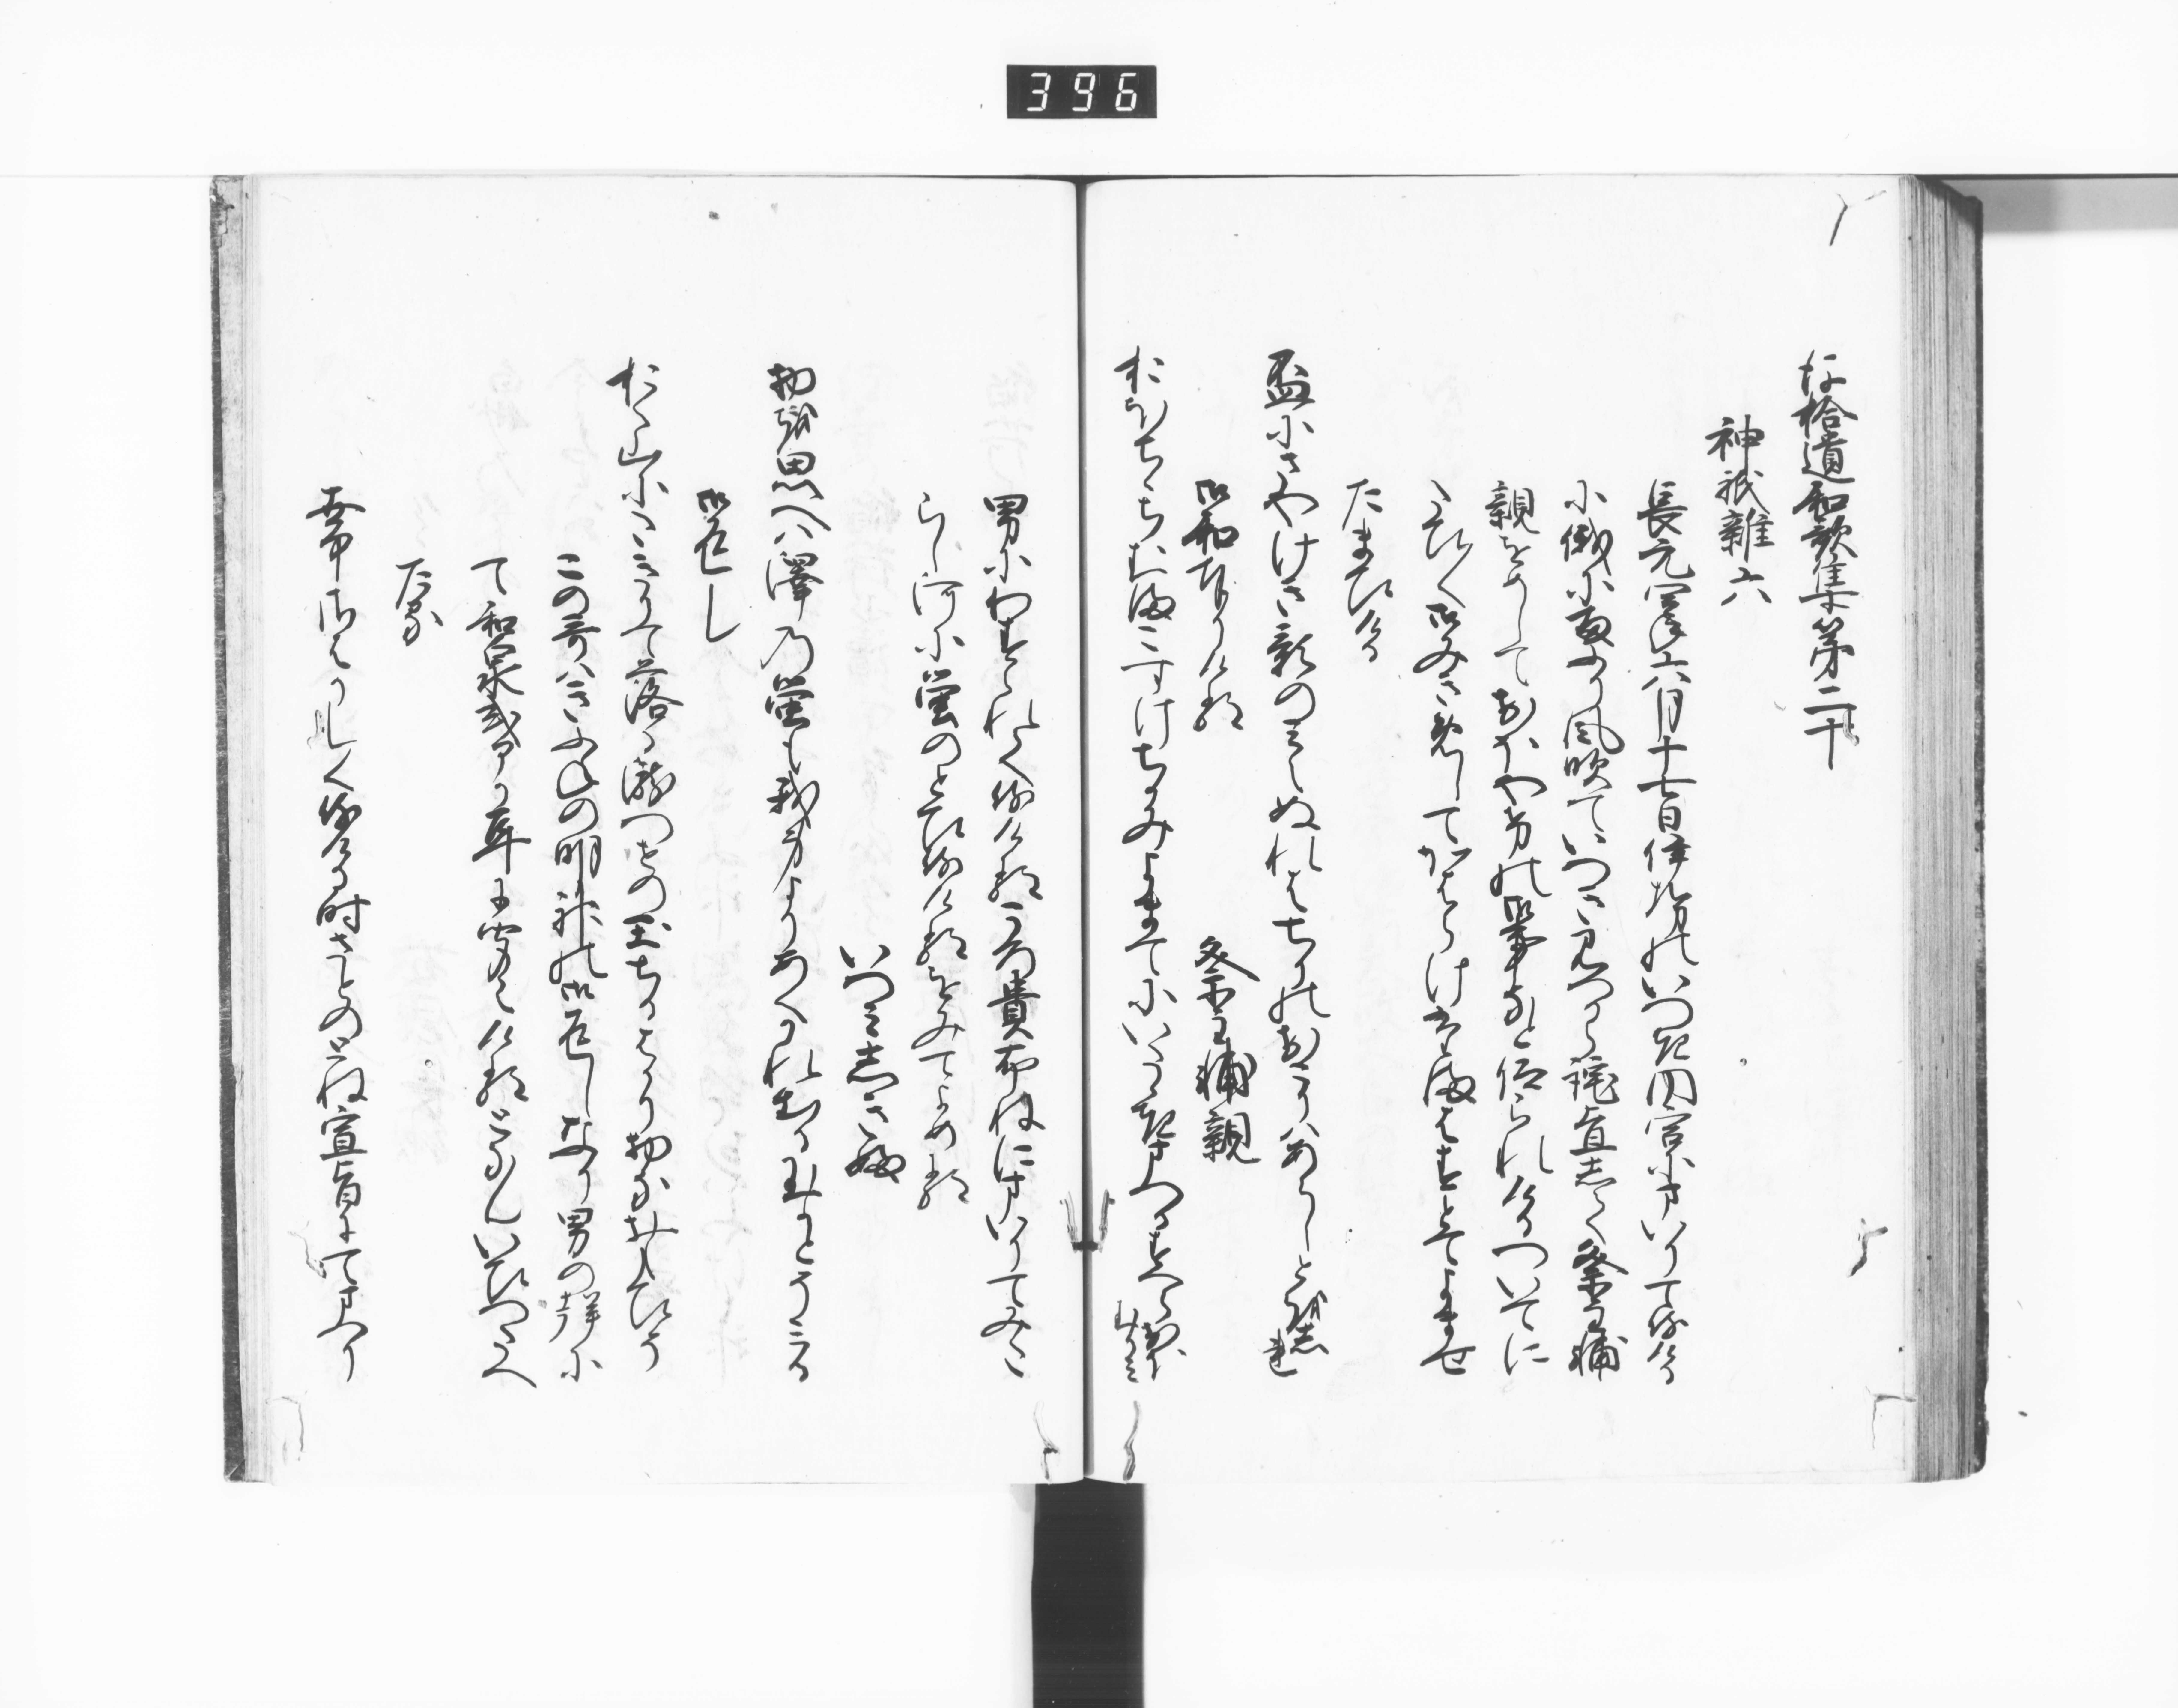 396
後拾遺和歌集第二十
神祇雑六
長元四年六月十七日伊勢のいつき内宮にまいりて侍ける
に俄に雨ふり風吹ていつきみつから詫宣して祭主輔
親をめしておほやけの御事なと仰られけるついてに
たひ〳〵御みきめしてかはらけたまはすとてよませ
たまひける
盃にさやけき影のみえぬれはちりのおそりはあらしとを志れ
御和なりける
祭主輔親
おほちちちむまこすけちかみよまてにいたゝきまつるすへらおほむ神
男にわすられて侍ける比貴布祢にまいりてみた
らし河に蛍のとひ侍けるをみてよめる
いつみしきふ
物おもへは澤の蛍も我身よりあくかれ出る玉かとそみる
御返し
おく山にたきりて落る瀧つせの玉ちるはかり物なおもひそ
この哥はきふねの明神の御返しなり男の聲に
て和泉式部か耳に聞えけるとなんいひつたへ
たる